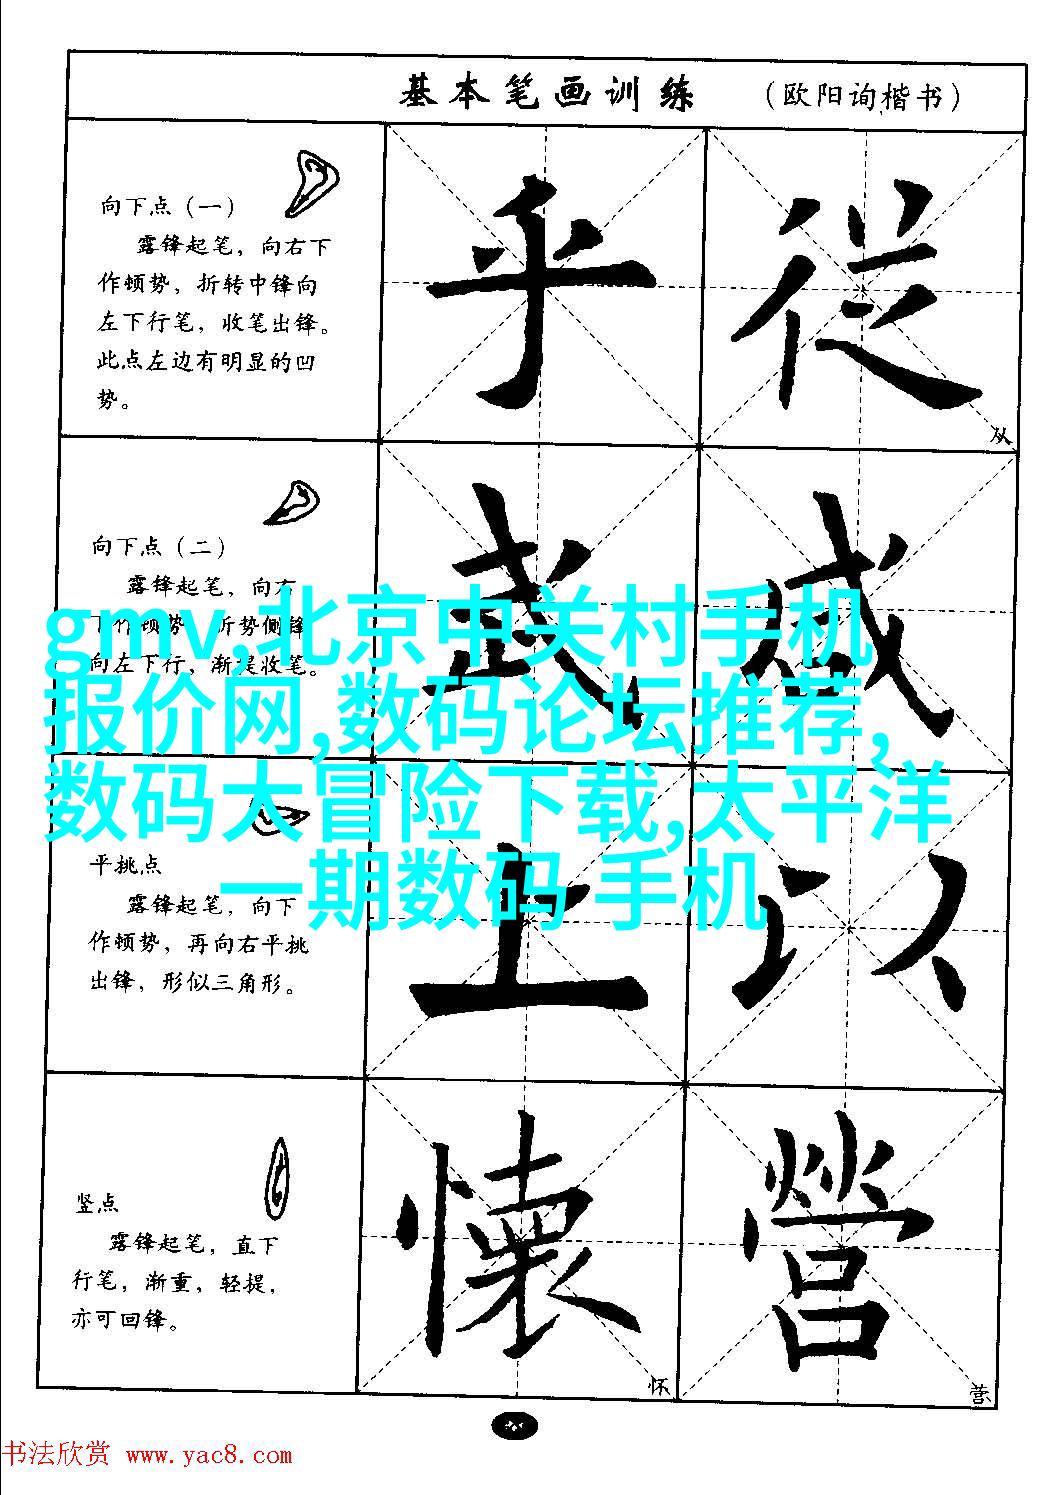 基本笔画训练 （欧阳询楷书）
向下点（一）
露锋起笔，向右下
作顿势，折转中锋向
左下行笔，收笔出锋。
此点左边有明显的凹
势。
乎 從
从
向下点（二）
露锋起笔，向右
下作顿势，折势侧锋
向左下行，渐提收笔。
武 感
gmv,北京中关村手机
报价网,数码论坛推荐,
数码大冒险下载,太平洋
一期数码 手机
平挑点
露锋起笔，向下
作顿势，再向右平挑
出锋，形似三角形。
上 以
竖点
露锋起笔，直下
行笔，渐重，轻提，
亦可回锋。
懷 營
怀 营
书法欣赏 www.yac8.com